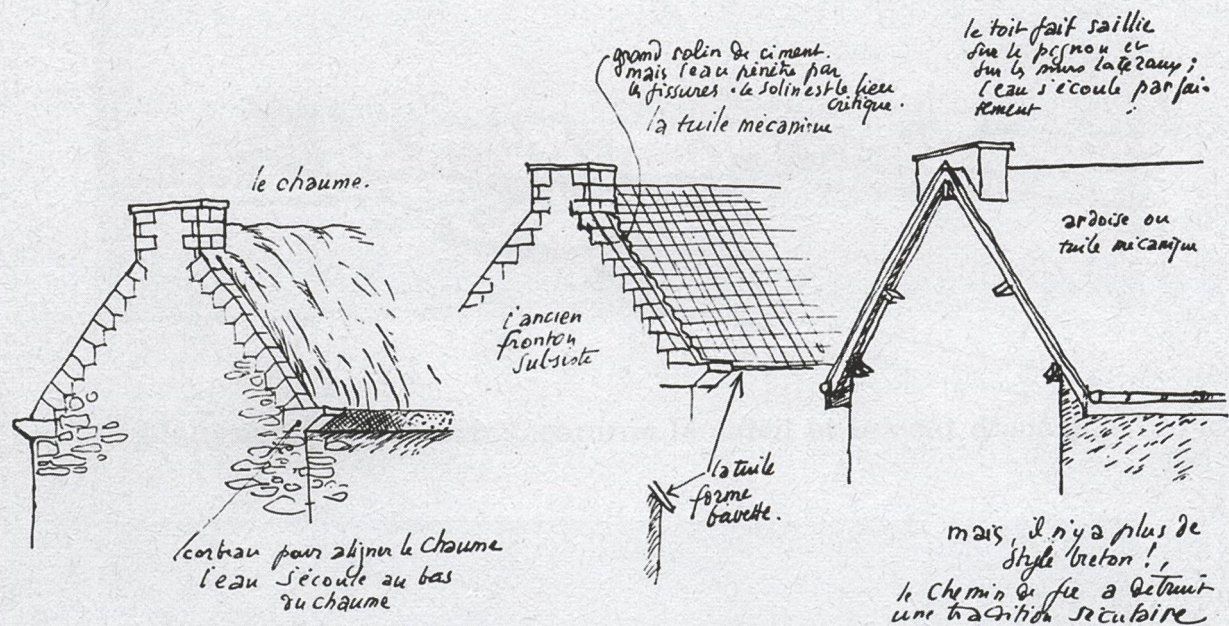 le chaume.
corbeau pour aligner le chaume
l'eau s'écoule au bas
du chaume
grand solin de ciment.
mais l'eau pénètre par
les fissures. le solin est le lieu
critique.
la tuile mécanique
l'ancien
fronton
subsiste
la tuile
forme
bavette.
le toit fait saillie
sur le pignon et
sur les murs latéraux;
l'eau s'écoule parfai-
tement
ardoise ou
tuile mécanique
mais, il n'y a plus de
style breton!,
le chemin de fer a détruit
une tradition séculaire